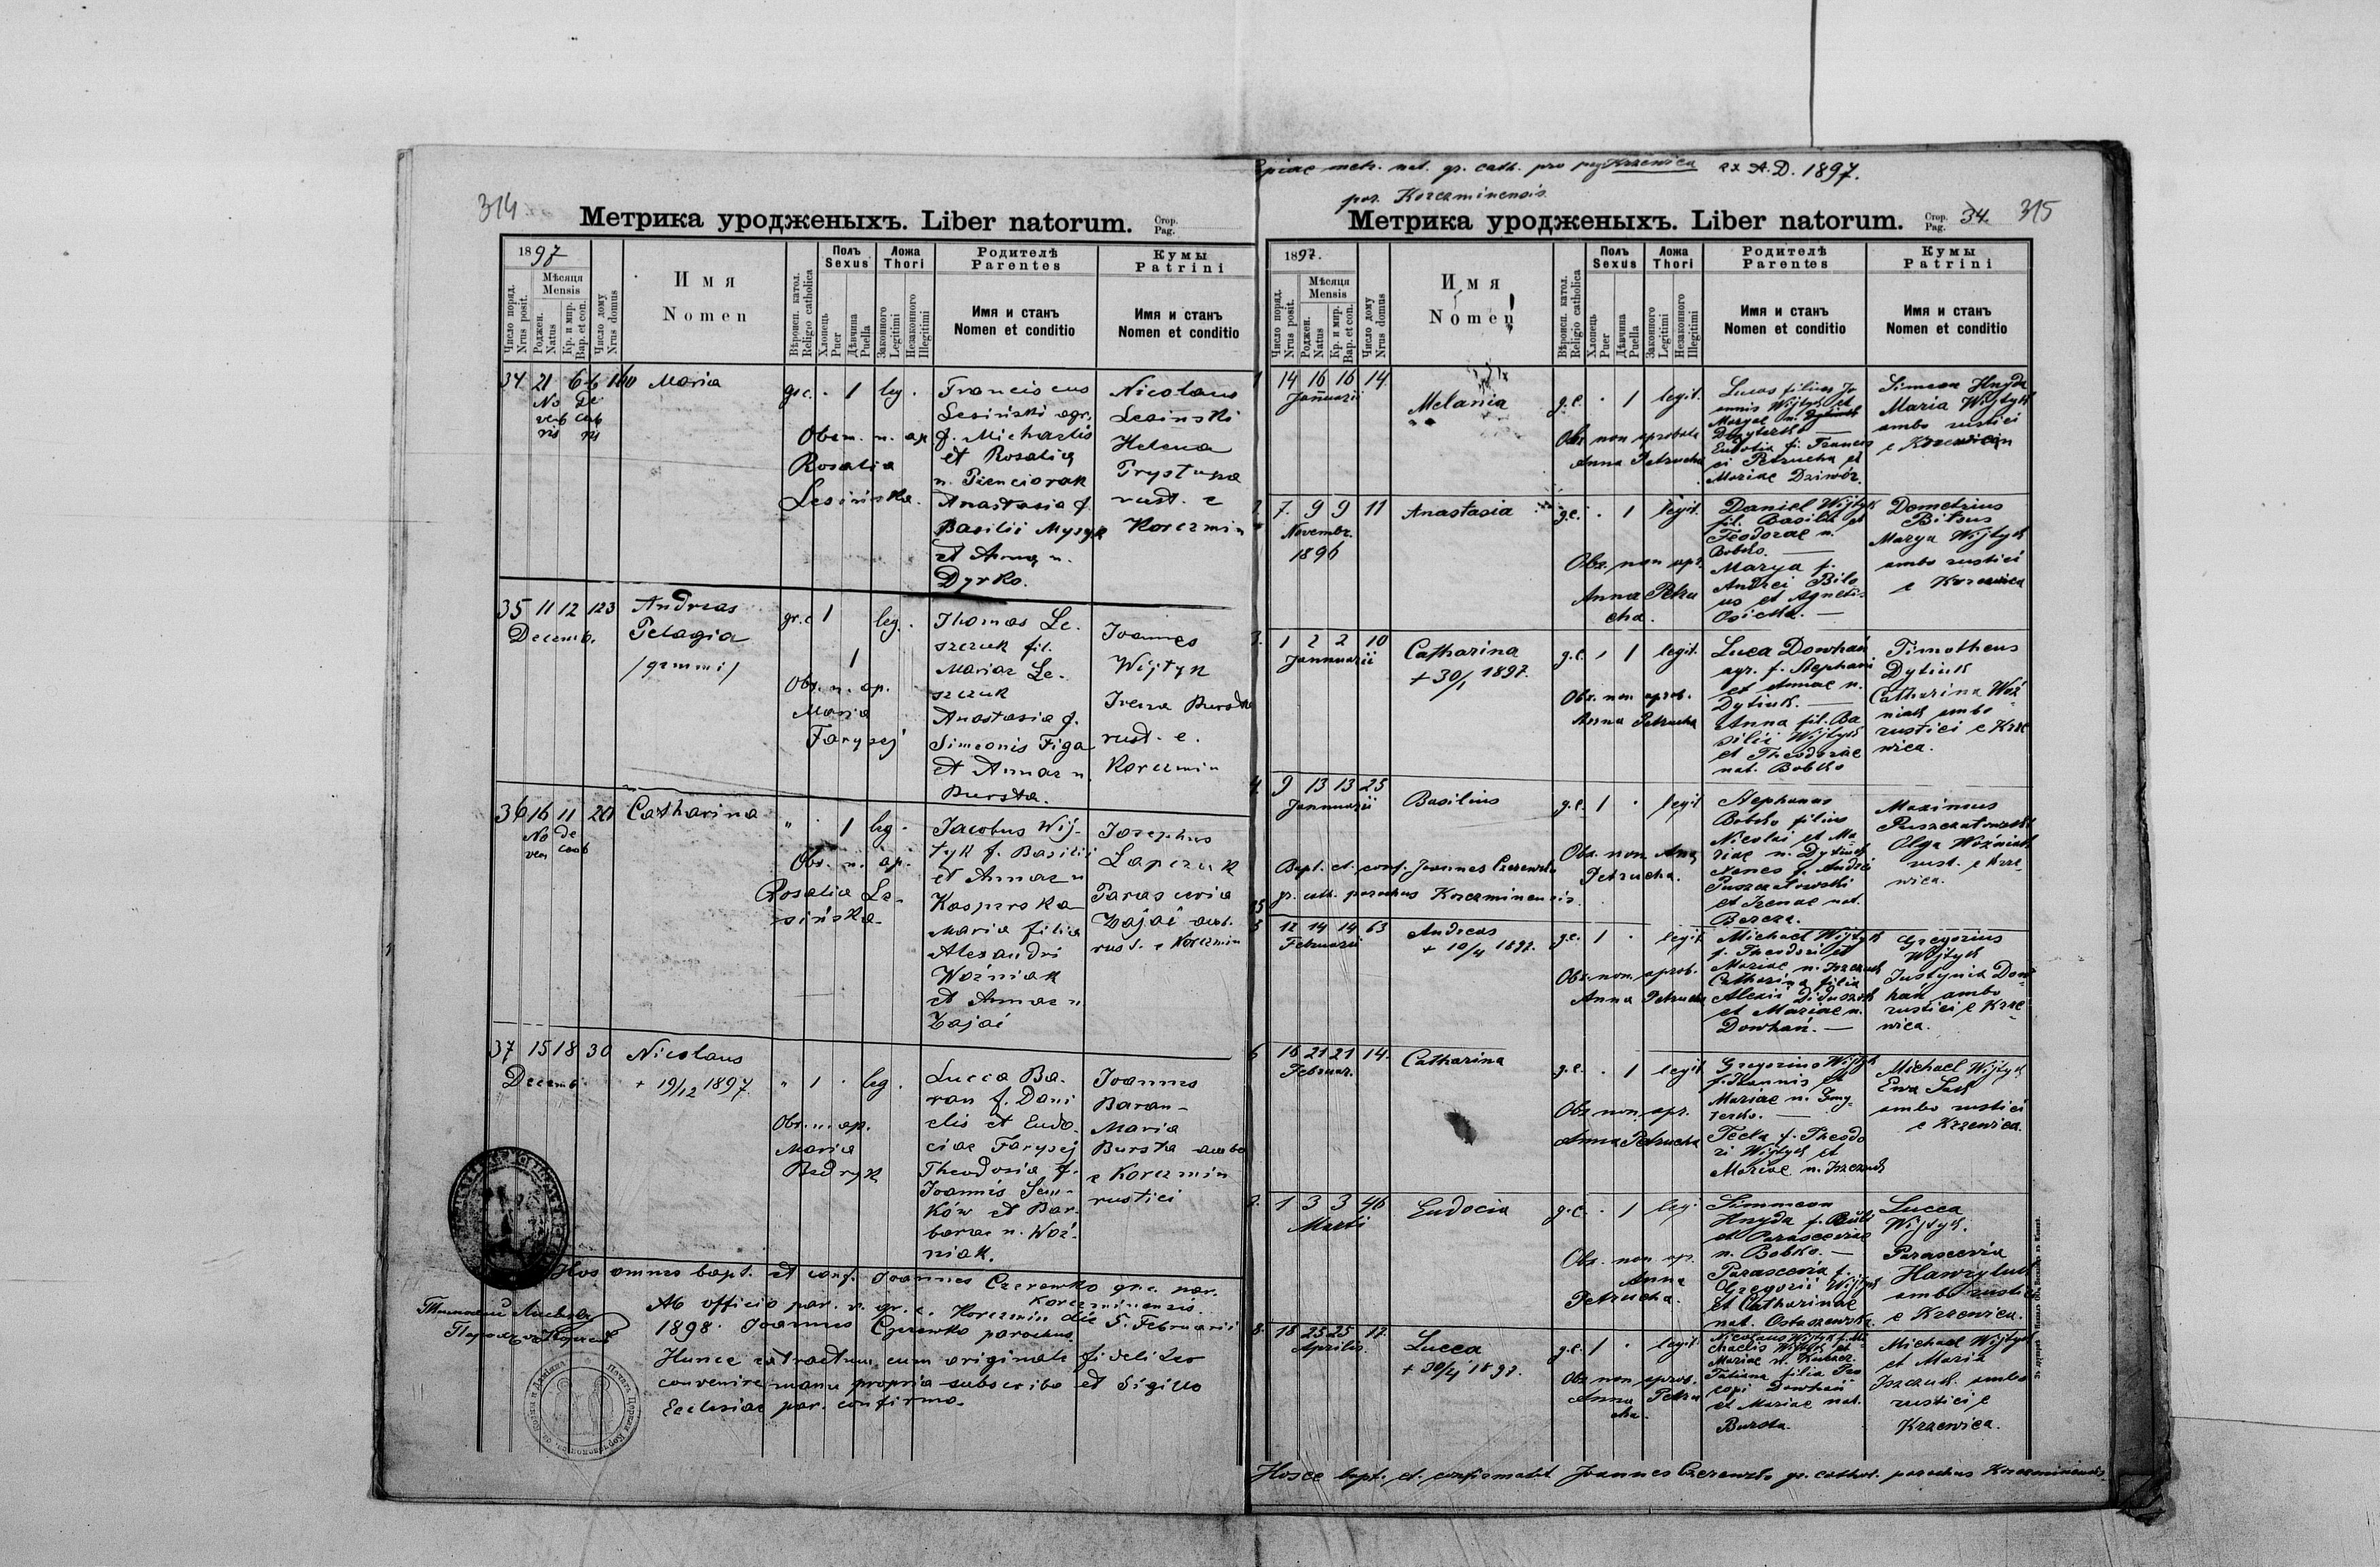 314
Метрика уродженыхъ. Liber natorum.
Стор.
Pag.
1897
Число поряд.
Nrus posit.
Мѣсяця
Mensis
Роджен.
Natus
Кр. и мир.
Bap. et con.
Число дому
Nrus domus
Имя
Nomen
Вѣроисп. катол.
Religio catholica
Полъ
Sexus
Хлопець
Puer
Дѣвчина
Puella
Ложа
Thori
Законного
Legitimi
Незаконного
Illegitimi
Родителѣ
Parentes
Имя и станъ
Nomen et conditio
Кумы
Patrini
Имя и станъ
Nomen et conditio
34 21 6
No De
vemb cemb
ris ris
Maria
gr.c. . 1 leg.
Obsn. n. ap
Rosalia
Lesińska.
Franciscus
Lesiński agr.
f. Michaelis
et Rosalia
n. Pienciorak
Anastasia f.
Basilii Mysyk
et Anna n.
Dyrko.
Nicolaus
Lesinski
Helena
Prystupa
rust. e
Korczmin
35 11 12 123
Decemb.
Andreas
Pelagia
/gemmi/
gr.c 1 leg.
1
Obs. n. ap.
Maria
Farysej
Thomas Le-
szczuk fil.
Mariae Le-
szczuk
Anastasia f.
Simeonis Figa
et Annae n.
Bursta.
Joannes
Wijtyk
Irena Bursta
rust. e.
Korczmin
36 16 11 20
No De
vem cemb
Catharina
" . 1 leg.
Obs. n. ap.
Rosalia Le-
sińska
Jacobus Wij-
tyk f. Basilii
et Annae n
Kasperska
Maria filia
Alexandri
Woźniak
et Annae n
Zajać
Josephus
Lapczuk
Parascevia
Zajać amb.
rust. e Korczmin
37 15 18 30
Decemb.
Nicolaus
+ 19/12 1897.
" 1 . leg.
Obs. n. ap.
Maria
Bedryk
Lucca Ba-
ran f. Dani
elis et Eudo-
ciae Farysej
Theodosia f.
Joannis Sen-
ków et Bar-
barae n. Woź-
niak.
Joannes
Baran -
Maria
Bursta ambo
e Korczmin
rustici
Hos omnes bapt. et conf. Joannes Czerewko gr.c. par.
Korczminensis.
Ab officio par. r. gr. c. Korczmin die 5. Februarii
1898. Joannes Czerewko parochus
Hunce extractum cum originale fideliter
convenire manu propria subscribo et Sigillo
Ecclesiae par. confirmo.
metr. nat. gr. cath. pro Krzewica ex A.D. 1897.
par. Korczminensis
Метрика уродженыхъ. Liber natorum.
Стор.
Pag. 34. 315
1897.
Число поряд.
Nrus posit.
Мѣсяця
Mensis
Роджен.
Natus
Кр. и мир.
Bap. et con.
Число дому
Nrus domus
Имя
Nomen
Вѣроисп. катол.
Religio catholica
Полъ
Sexus
Хлопець
Puer
Дѣвчина
Puella
Ложа
Thori
Законного
Legitimi
Незаконного
Illegitimi
Родителѣ
Parentes
Имя и станъ
Nomen et conditio
Кумы
Patrini
Имя и станъ
Nomen et conditio
1 14 16 16 14
Januarii
Melania
g.c. . 1 legit.
Obs. non aprobata
Anna Petrucha
Lucas filius Jo
annis Wijtyk et
Maryae n.
Eudokia fi. Francis
ci Petrucha et
Mariae Dziwór.
Simeon Hnyda
Maria Wijtyk
ambo rustici
e Krzewica
2. 7. 9 9 11
Novembr.
1896
Anastasia
g.c. . 1 legit.
Obs. non apr.
Anna Petru
cha.
Daniel Wijtyk
fil. Basilii et
Feodorae n.
Bobko.
Marya f.
Andrei Bito
us et Agnetis
Osicka.
Demetrius
Bitous
Marya Wijtyk
ambo rustici
e Krzewica
3. 1 2 2 10
Januarii
Catharina
+ 30/1 1897.
g.c. . 1 legit.
Obs. non aprob.
Anna Petrucha
Luca Dowhań
agr. f. Stephani
et Annae n.
Dytiuk.
Anna fil. Ba
silii Wijtyk
et Theodorae
nat. Bobko
Timotheus
Dytiuk
Catharina Woź
niak ambo
rustici e Krze
wica.
4. 9 13 13 25
Januarii
Basilius
g.c. 1 . legit
Obs. non Ana
Petrucha.
Bapt. et conf. Joannes Czerewko
gr. cath. parochus Korczminensis.
Stephanus
Bobko filius
Nicolai et Ma
riae n. Dytiuk
f. Andrei
Puszczatowski
et Irenae nat.
Bereza.
Maximus
Puszczatowski
Olga Woźniak
rust. e Krze-
wica.
5 12 14 14 63
Februarii
Andreas
+ 10/4 1897.
g.c. 1 . legit
Obs. non aprob.
Anna Petrucha
Michael Wijtyk
f. Theodori et
Mariae n.
Catharina filia
Alexii Diduszok
et Mariae n.
Dowhań.
Gregorius
Wijtyk
Justyna Dow
hań ambo
rustici e Krze
wica.
6 16 21 21 14.
Februar.
Catharina
g.c. . 1 legit
Obs non apr.
Anna Petrucha
Gregorius Wijtyk
f. Joannis et
Mariae n.
Tecla f. Theodo
ri Wijtyk et
Mariae n.
Michael Wijtyk
Ewa Sack
ambo rustici
e Krzewica.
1 3 3 46
Marti
Eudocia
g.c. . 1 leg.
Obs. non apr.
Anna
Petrucha.
Simmeon
Hnyda f.
et Parasceviae
n. Bobko.
Parascevia f.
Gregorii Wijtyk
et Catharinae
nat. Ostaszewska.
Lucca
Wijtyk.
Parascevia
Hawryluk
ambo rustici
e Krzewica.
8. 18 25 25 17.
Aprilis
Lucca
+ 30/4 1897.
g.c. 1 . legit.
Obs non aprob.
Anna Petru
cha.
Nicolaus Wijtyk f. Mi
chaelis Wijtyk et
Mariae n.
Tatiana filia Pro
copi Dowhań
et Mariae nat.
Bursta.
Michael Wijtyk
et Maria
ambo
rustici e
Krzewica.
Hosce bapt. et confirmabit Joannes Czerewko gr. cathol. parochus Korczminensis.